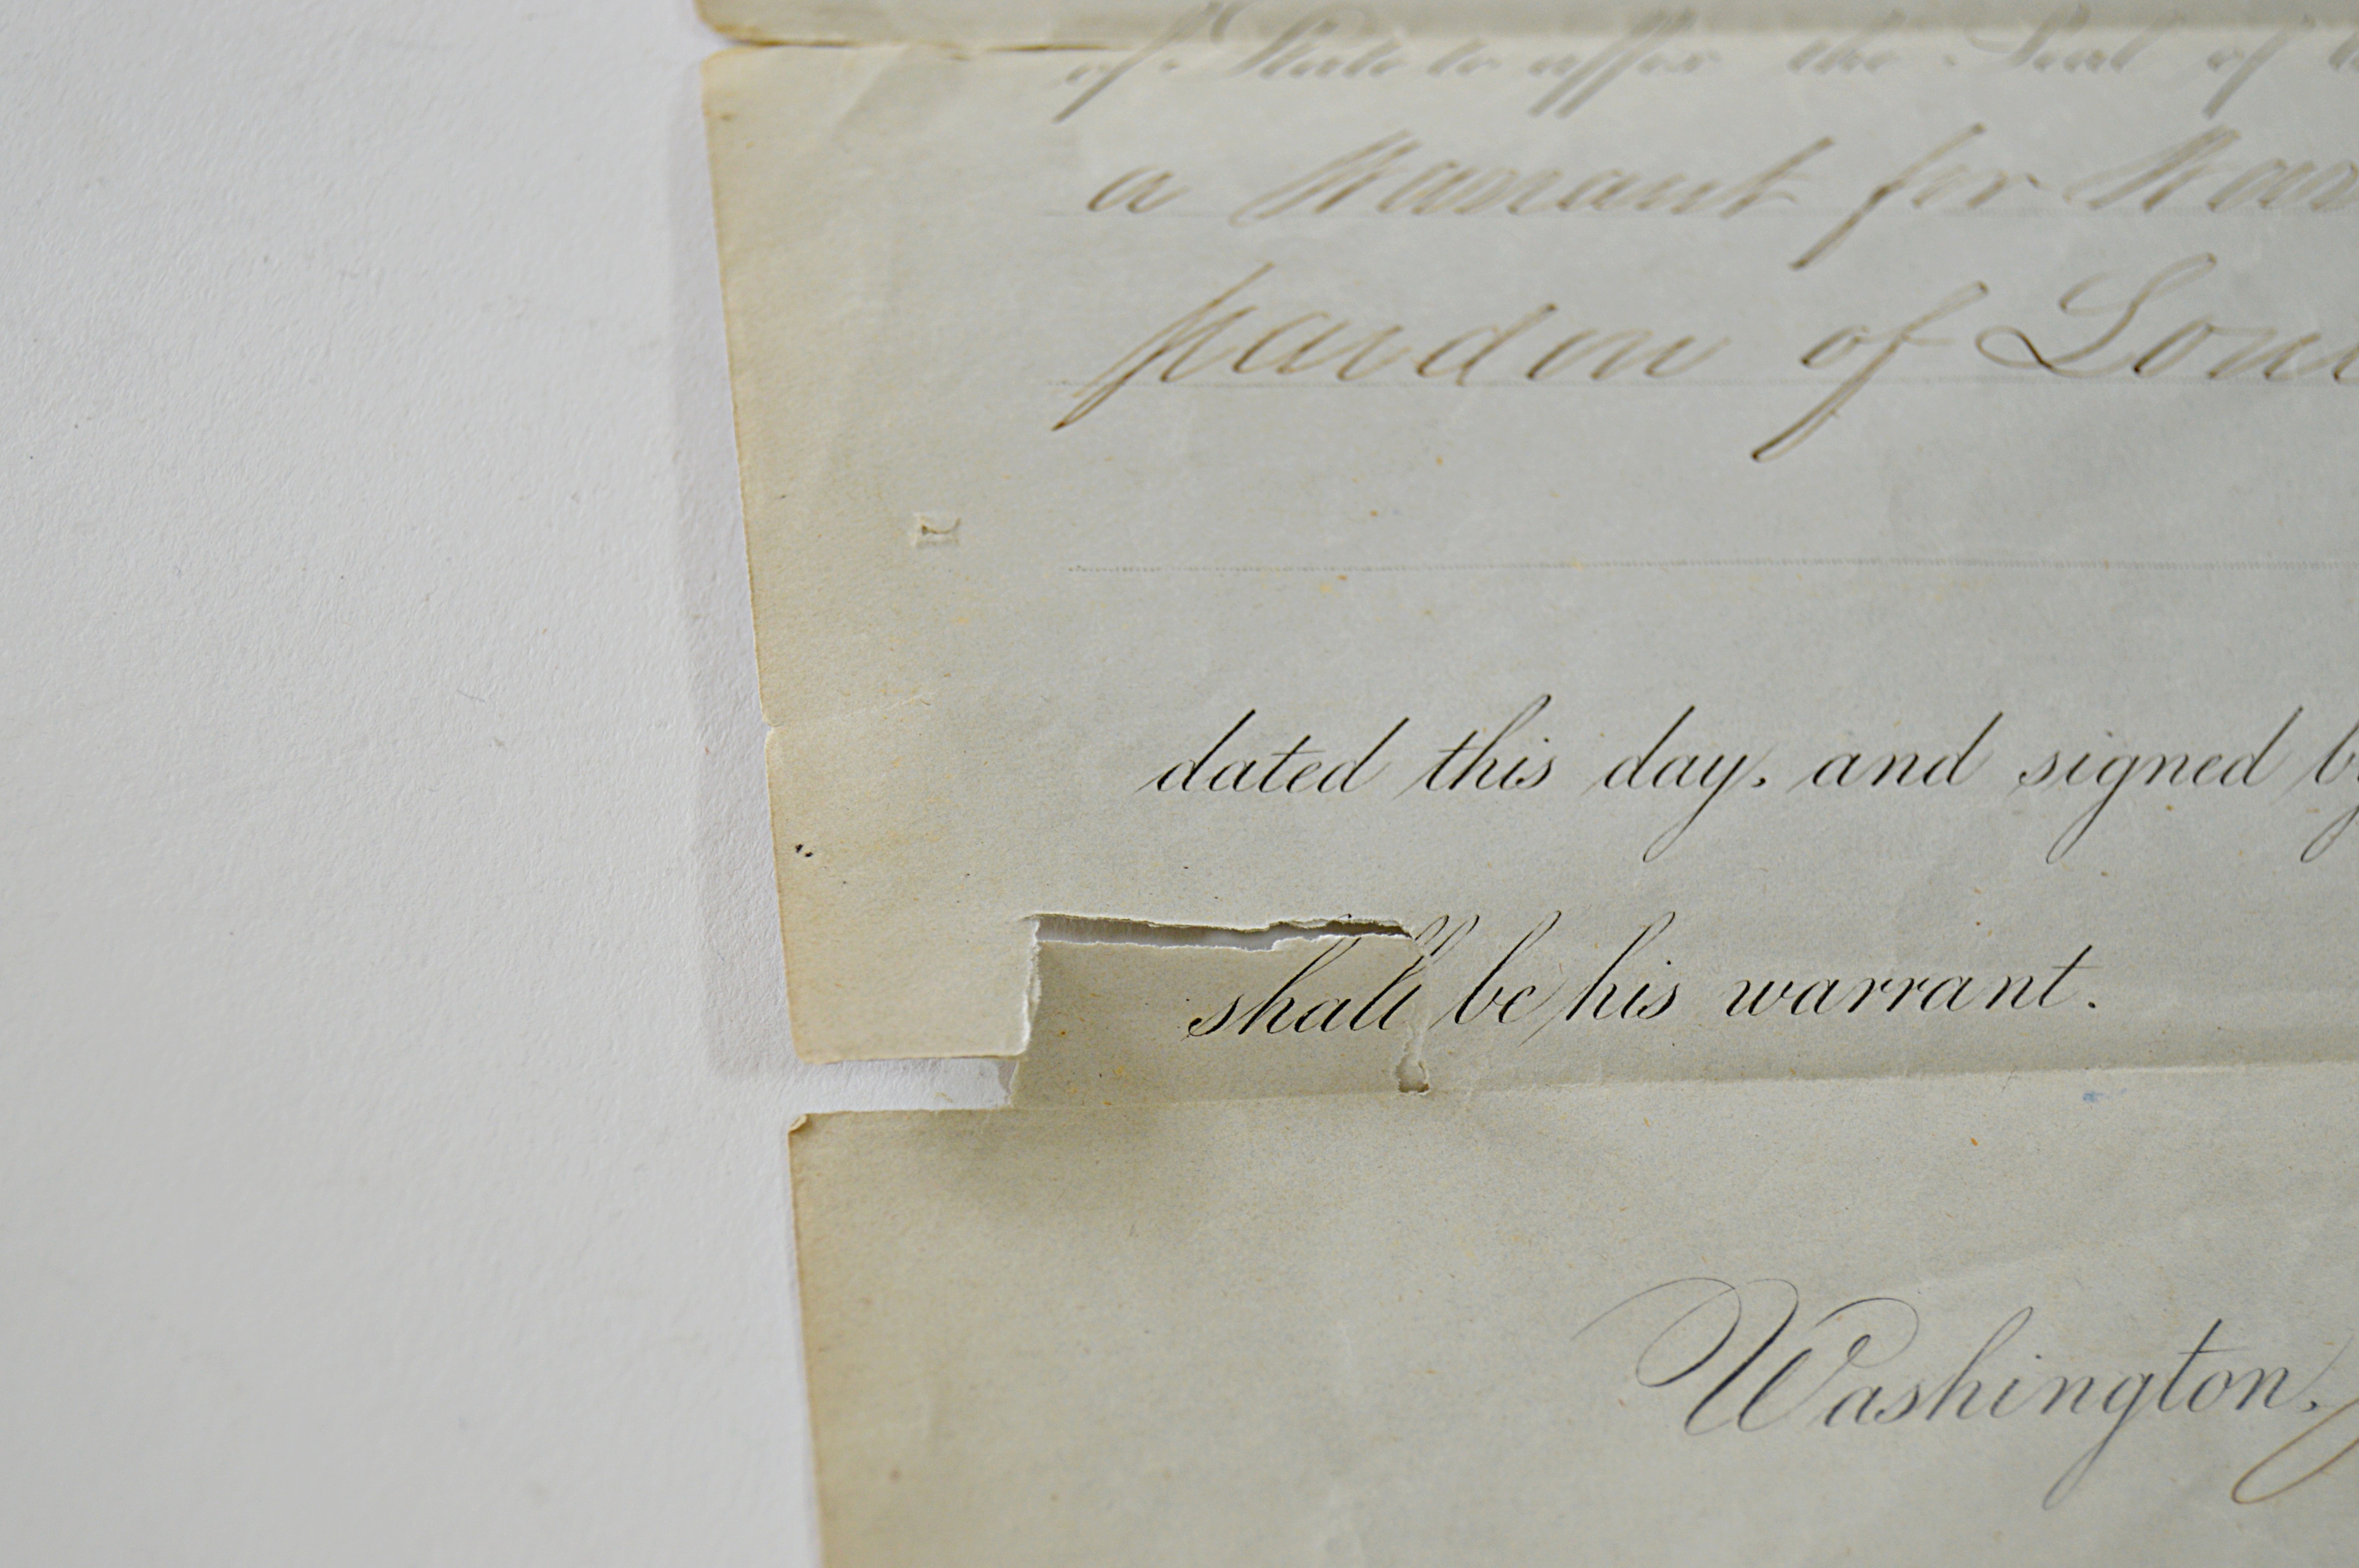 of State to affix the Seal of
a Warrant for
pardon of
dated this day, and signed by
shall be his warrant.
Washington,